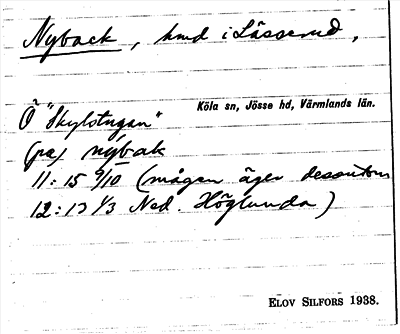 Nyback, hmd i Lässerud,
Köla sn, Jösse hd, Värmlands län.
Ö "Skylstugan"
(på) nýbak
11:15 9/10 (mågen äger dessutom
12:13 1/3 Ned. Höglunda)
ELOV SILFORS 1938.